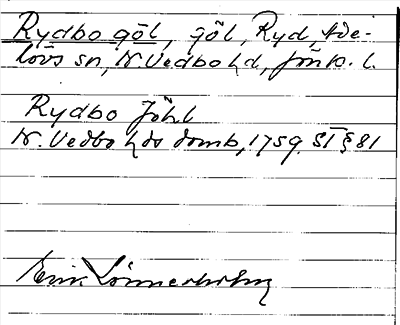 Rydbo göl, göl, Ryd, Ade-
lövs sn, N. Vedbo hd, Jönk. l.
Rydbo Jöhl
N. Vedbo hds domb, 1759 ST § 81
Erik Lönnerholm